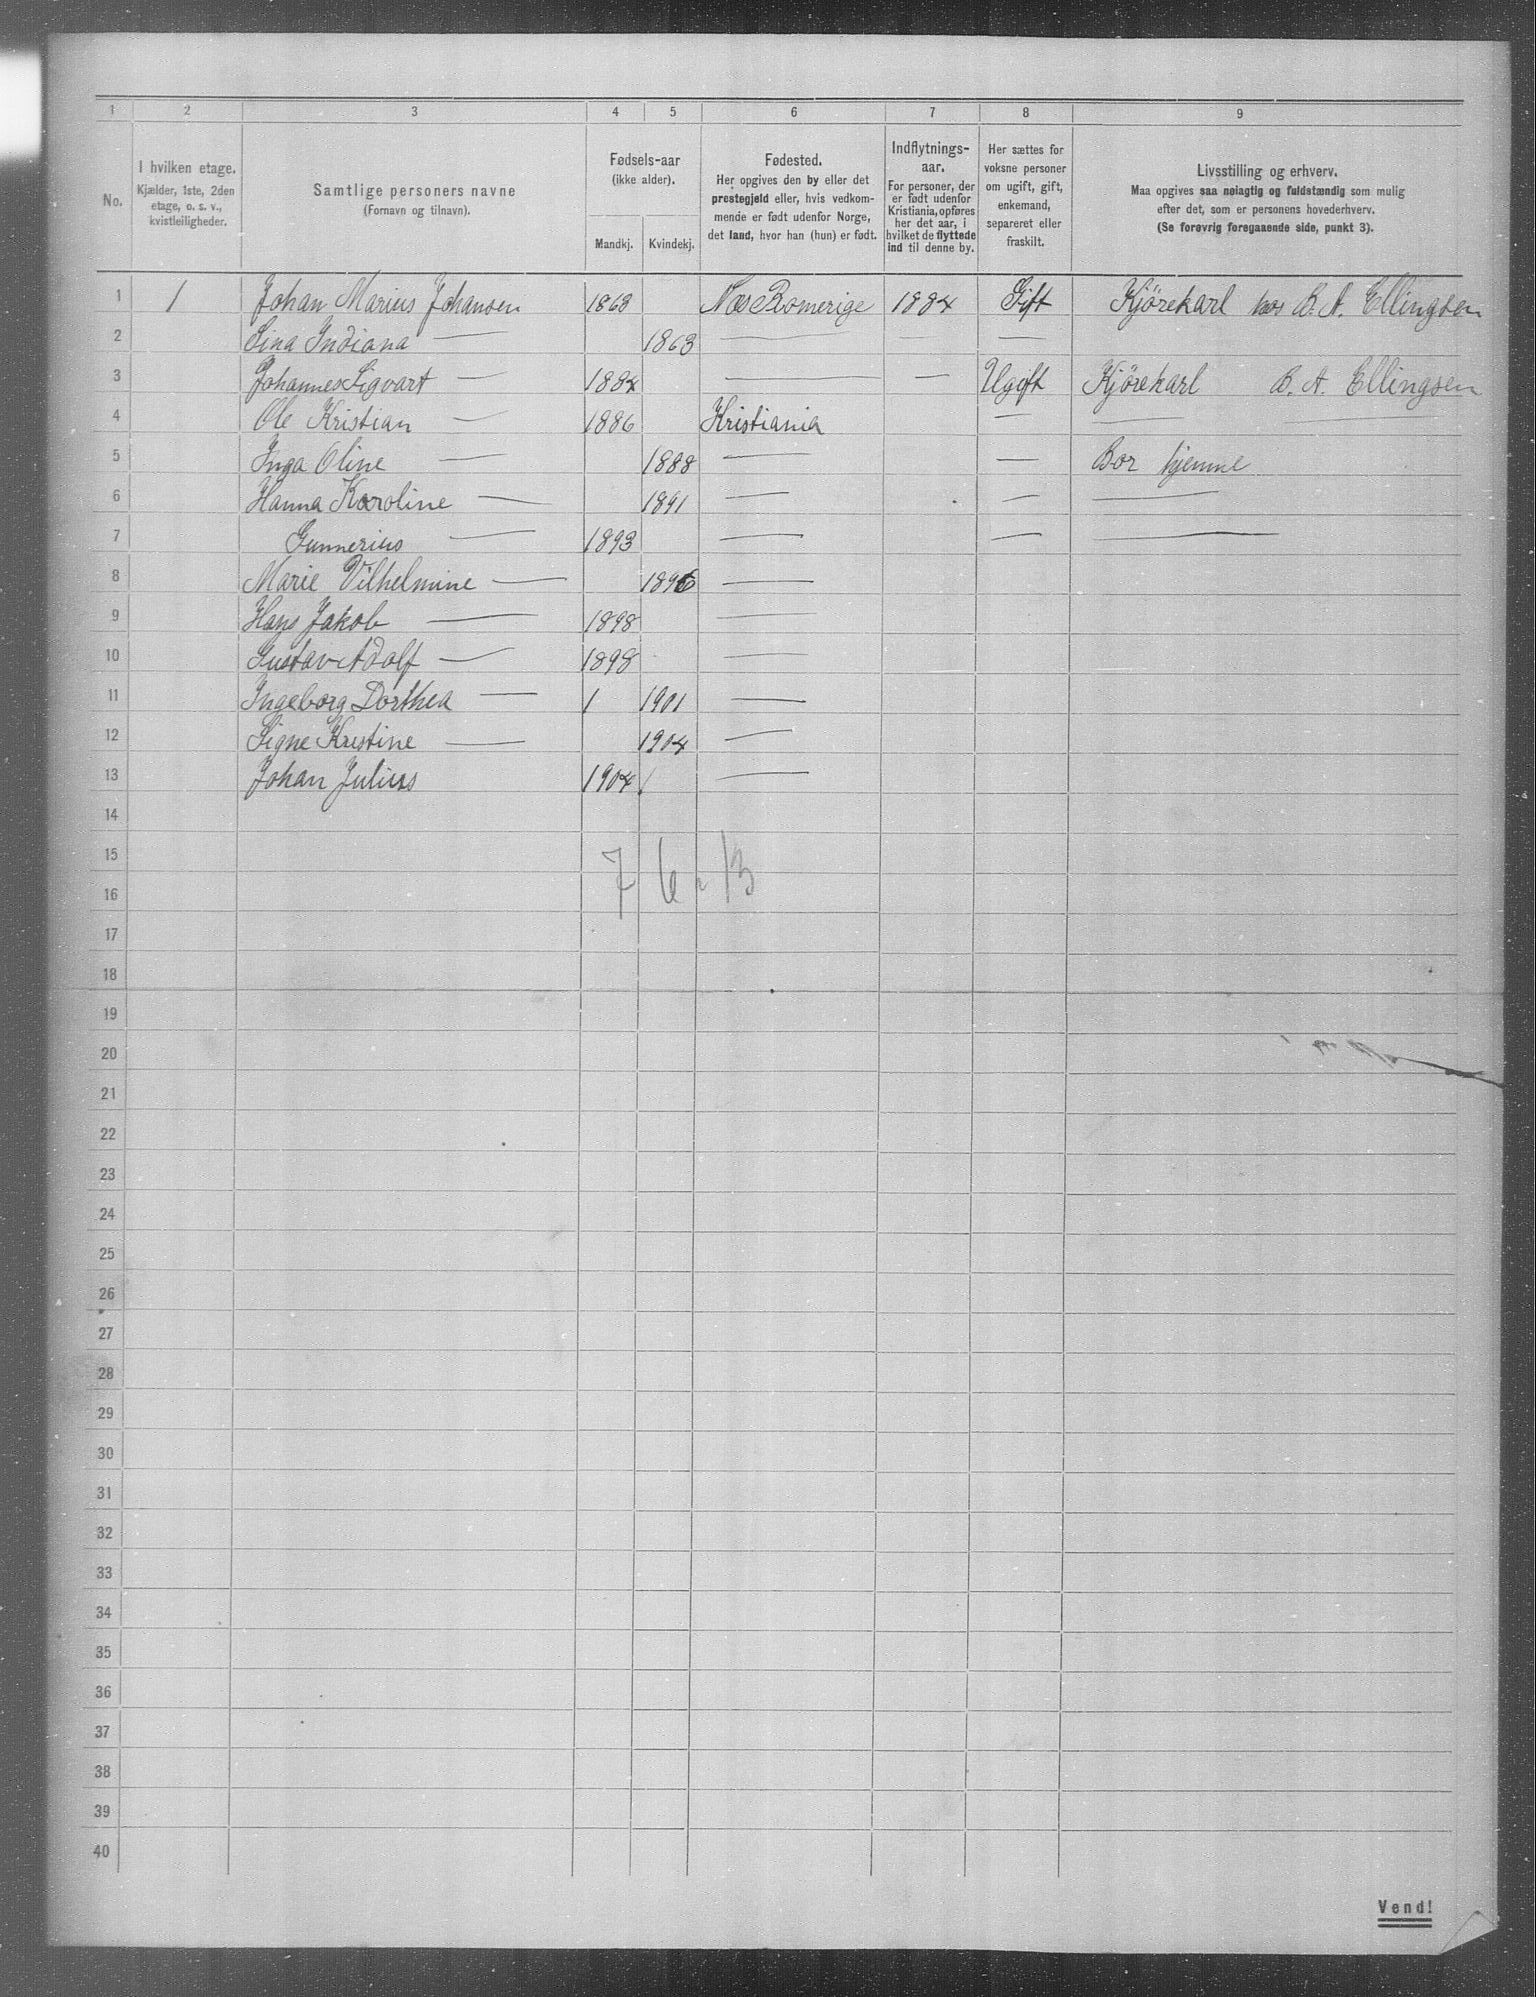 1 2 3 4 5 6 7 8 9
No.
I hvilken etage.
Kjælder, 1ste, 2den
etage, o. s. v.,
kvistleiligheder.
Samtlige personers navne
(Fornavn og tilnavn).
Fødsels-aar
(ikke alder).
Mandkj. Kvindekj.
Fødested.
Her opgives den by eller det
prestegjeld eller, hvis vedkom-
mende er født udenfor Norge,
det land, hvor han (hun) er født.
Indflytnings-
aar.
For personer, der
er født udenfor
Kristiania, opføres
her det aar, i
hvilket de flyttede
ind til denne by.
Her sættes for
voksne personer
om ugift, gift,
enkemand,
separeret eller
fraskilt.
Livsstilling og erhverv.
Maa opgives saa nøiagtig og fuldstændig som mulig
efter det, som er personens hovederhverv.
(Se forøvrig foregaaende side, punkt 3).
1 1 Johan Marius Johansen 1863 Næs Romerige 1884 Gift Kjörekarl hos B. A. Ellingsen
2 Lina Indiana — 1863 — — —
3 Johannes Sigvart — 1884 — — Ugift Kjörekarl B. A. Ellingsen
4 Ole Kristian — 1886 Kristiania — — —
5 Inga Oline — 1888 — — Bor hjemme
6 Hanna Karoline — 1891 — — —
7 Gunnerius — 1893 — — —
8 Marie Vilhelmine — 1896 —
9 Hans Jakob — 1898 —
10 Gustav Adolf — 1898 —
11 Ingeborg Dorthea — 1 1901 —
12 Signe Kristine — 1904 —
13 Johan Julius 1904 —
14
15
7 6 = 13
16
17
18
19
20
21
22
23
24
25
26
27
28
29
30
31
32
33
34
35
36
37
38
39
40
Vend!